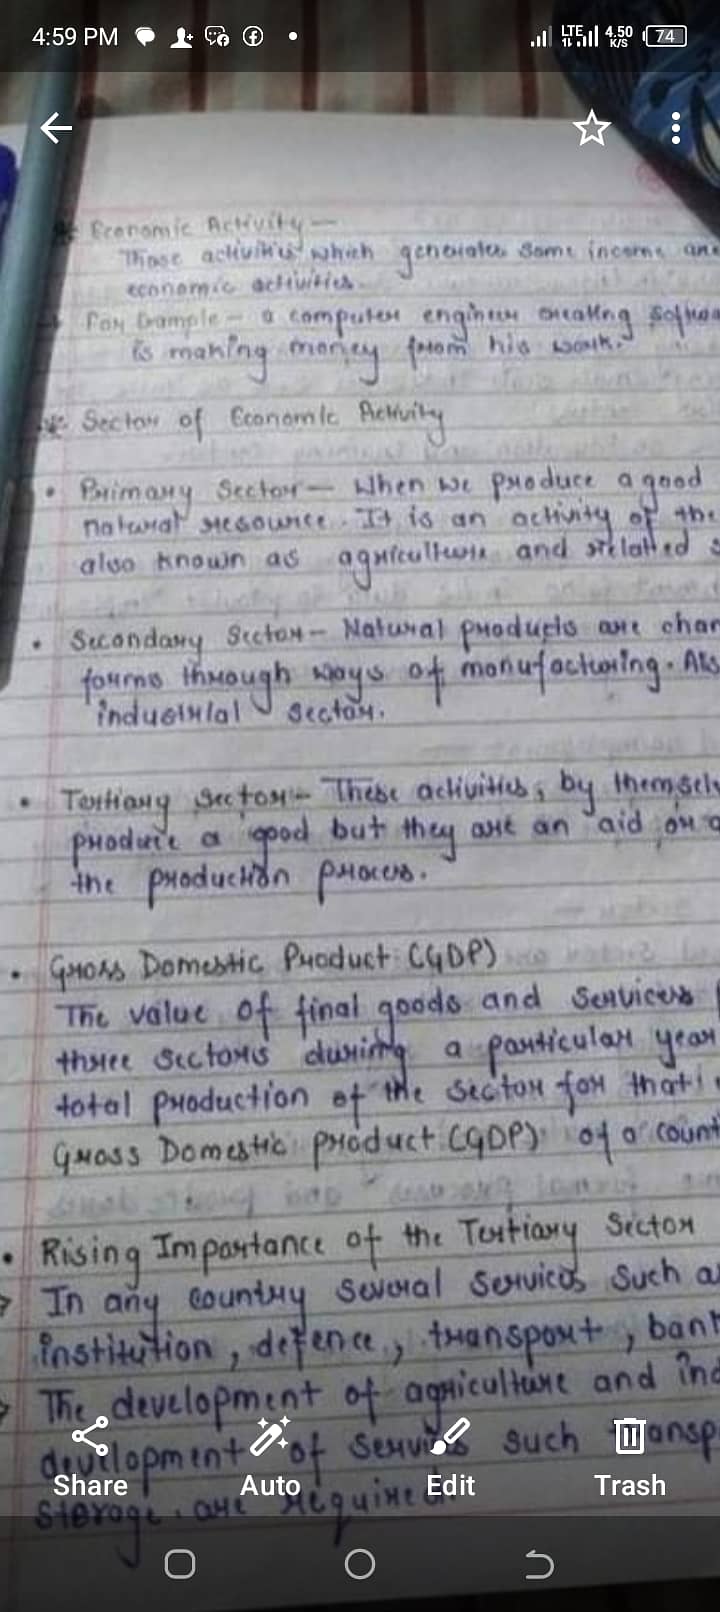 4:59 PM
LTE 4.50 K/S 74
Economic Activity —
Those activities which generates some income are
economic activities.
For Example - a computer engineer creating
is making money from his work.
Sector of Economic Activity
• Primary Sector — When we produce a good
natural resource. It is an activity of the
also known as agriculture and related
• Secondary Sector - Natural products are
forms through ways of manufacturing.
industrial sector.
• Tertiary Sector - These activities, by
produce a good but they are an aid or a
the production process.
• Gross Domestic Product (GDP)
The value of final goods and services
three sectors during a particular year
total production of the sector for that
Gross Domestic Product (GDP) of a
• Rising Importance of the Tertiary Sector
In any country several services such
institution, defence, transport,
The development of agriculture and
development of services such
storage. are required.
Share Auto Edit Trash